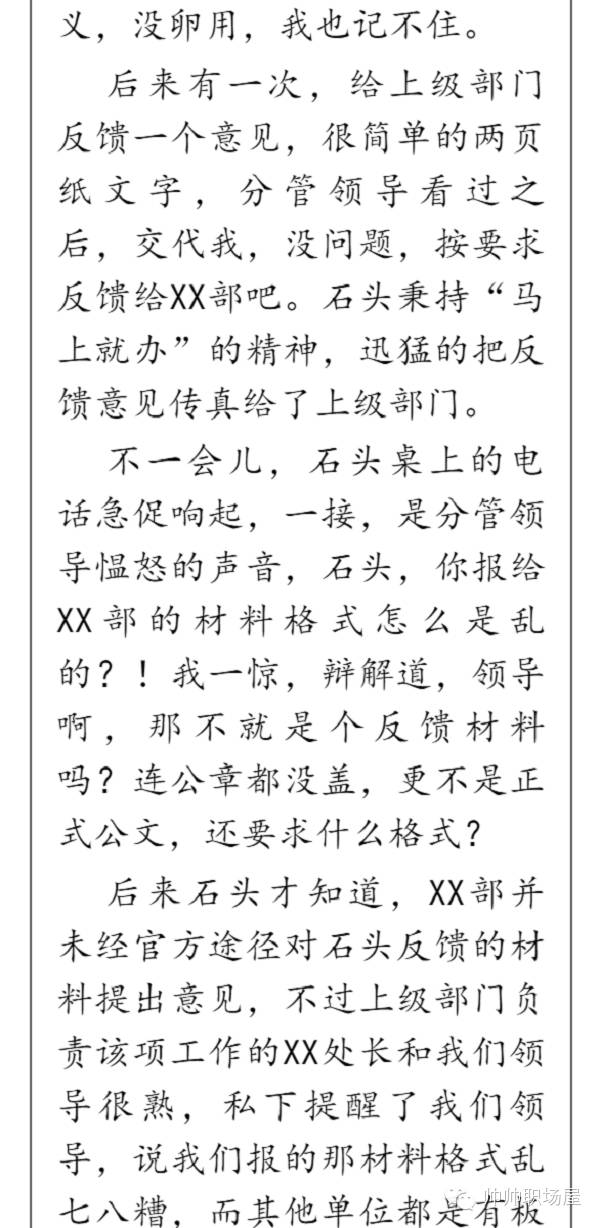 义，没卵用，我也记不住。
后来有一次，给上级部门
反馈一个意见，很简单的两页
纸文字，分管领导看过之
后，交代我，没问题，按要求
反馈给XX部吧。石头秉持“马
上就办”的精神，迅猛的把反
馈意见传真给了上级部门。
不一会儿，石头桌上的电
话急促响起，一接，是分管领
导愠怒的声音，石头，你报给
XX部的材料格式怎么是乱
的？！我一惊，辩解道，领导
啊，那不就是个反馈材料
吗？连公章都没盖，更不是正
式公文，还要求什么格式？
后来石头才知道，XX部并
未经官方途径对石头反馈的材
料提出意见，不过上级部门负
责该项工作的XX处长和我们领
导很熟，私下提醒了我们领
导，说我们报的那材料格式乱
七八糟，而其他单位都是有板
帅帅职场屋